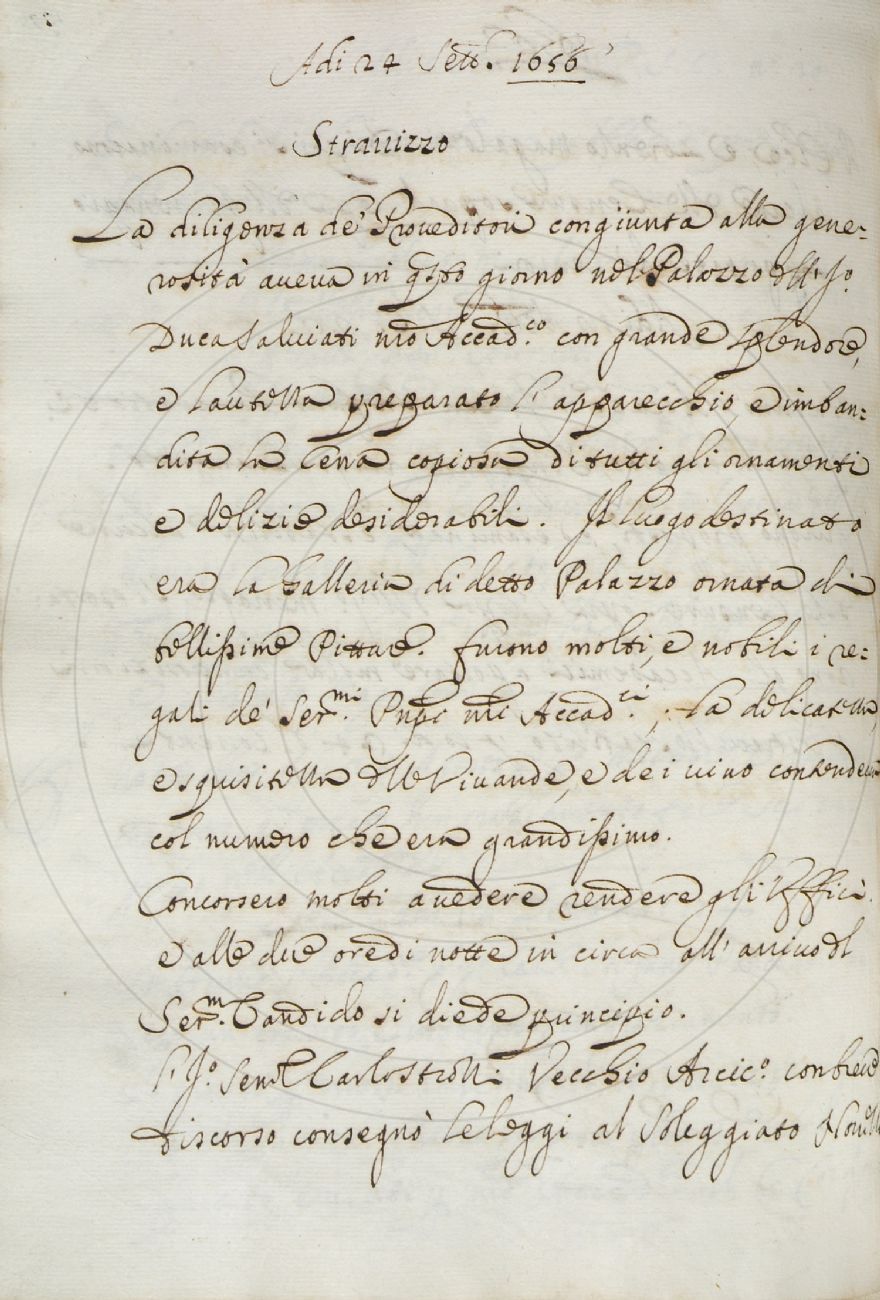 Adi 24 Sett. 1656
Strauizzo
La diligenza de' Proueditori congiunta alla gene=
rosità aueua in qsto giorno nel Palazzo dell'Jo.
Duca Saluiati nro Accad.co con grande splendore,
e lautezza preparato l'apparecchio, e imban=
dita la Cena copiosa di tutti gli ornamenti
e delizie desiderabili. Il luogo destinato
era la Galleria di detto Palazzo ornata di
bellissime Pitture. furono molti, e nobili i re=
gali de' Ser.mi Pnpi nri Accad.ci, la delicatezza,
e squisitezza delle Viuande, e dei uino contendeua
col numero che era grandissimo.
Concorsero molti a uedere rendere gli Uffici.
e alle due ore di notte in circa all'arriuo del
Ser.m Candido si diede principio.
l'Jo. Sen. Carlo Strozzi Vecchio Arcic.o con breue
discorso consegnò le leggi al Soleggiato Nouello